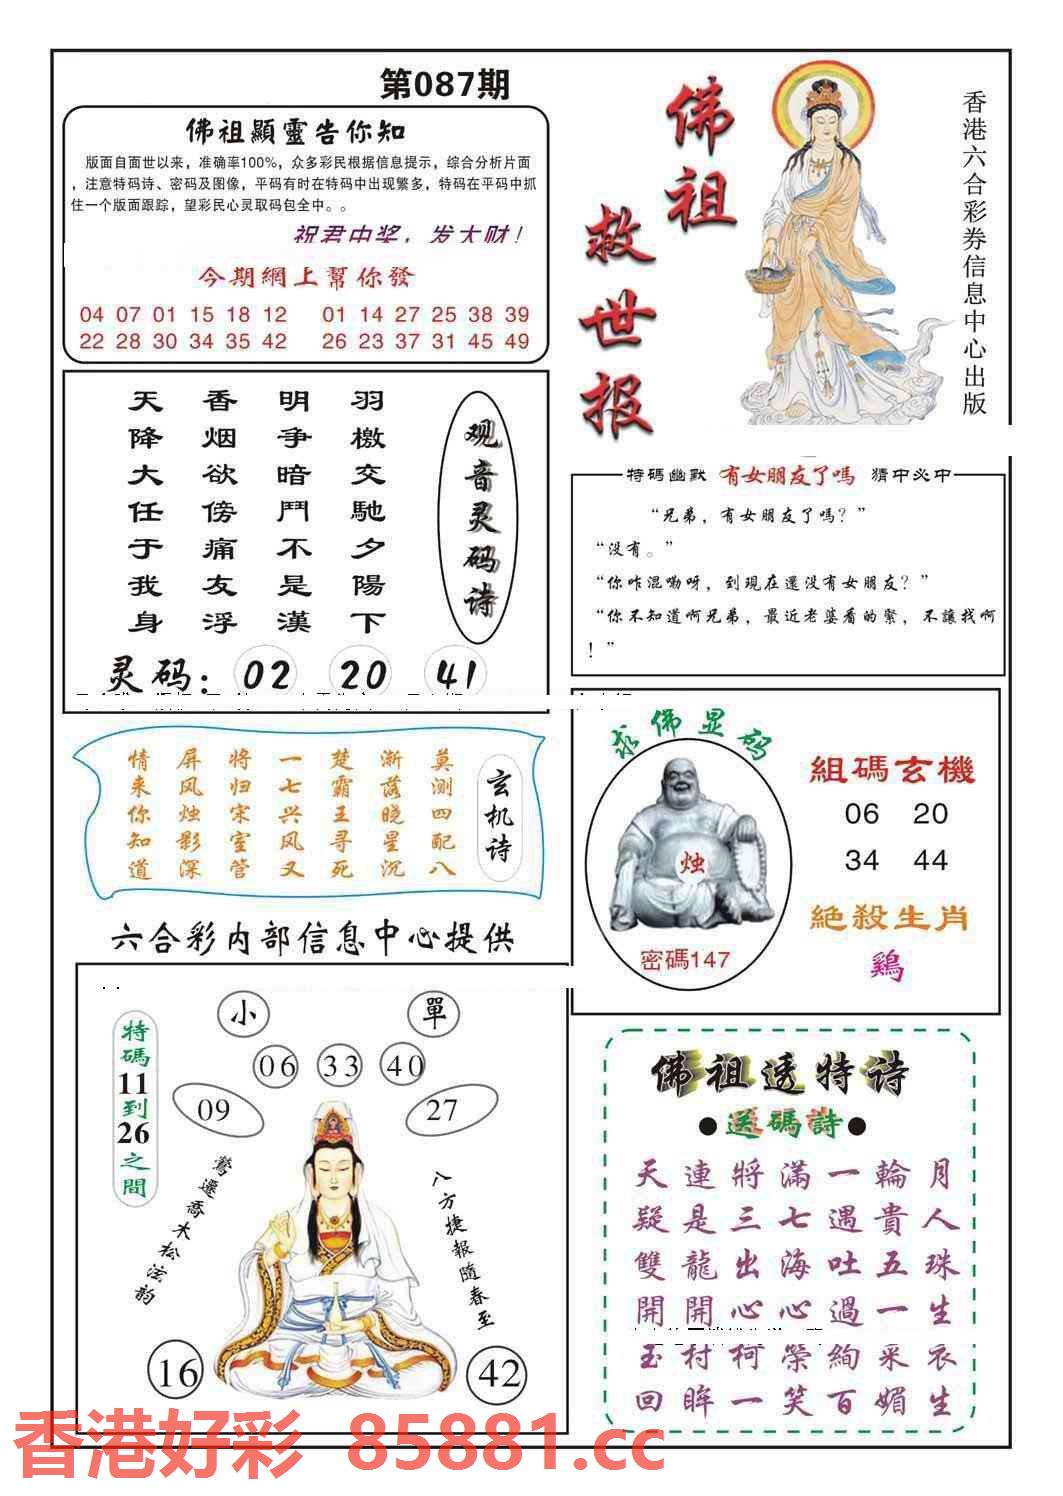 第087期
佛祖顯靈告你知
版面自面世以来，准确率100%，众多彩民根据信息提示，综合分析片面
，注意特码诗、密码及图像，平码有时在特码中出现繁多，特码在平码中抓
住一个版面跟踪，望彩民心灵取码包全中。。
祝君中奖，发大财！
今期網上幫你發
04 07 01 15 18 12 01 14 27 25 38 39
22 28 30 34 35 42 26 23 37 31 45 49
佛祖
救世报
香港六合彩券信息中心出版
观音灵码诗
羽檄交馳夕陽下
明争暗鬥不是漢
香烟欲傍痛友浮
天降大任于我身
灵码：02 20 41
特碼幽默 有女朋友了嗎 猜中必中
“兄弟，有女朋友了嗎？”
“没有。”
“你咋混嘞呀，到現在還没有女朋友？”
“你不知道啊兄弟，最近老婆看的緊，不讓找啊
！”
玄机诗
莫测四配八
渐落晓星沉
楚霸王寻死
一七兴风又
将归宋室管
屏风烛影深
情来你知道
求佛显码
烛
密碼147
組碼玄機
06 20
34 44
絶殺生肖
鷄
六合彩内部信息中心提供
特碼11到26之間
小 單
06 33 40
09 27
鶯遷喬木松泫韵
八方捷報隨春至
16 42
佛祖透特诗
●送碼詩●
天連將滿一輪月
疑是三七遇貴人
雙龍出海吐五珠
開開心心過一生
玉村柯榮絢采衣
回眸一笑百媚生
香港好彩 85881.cc